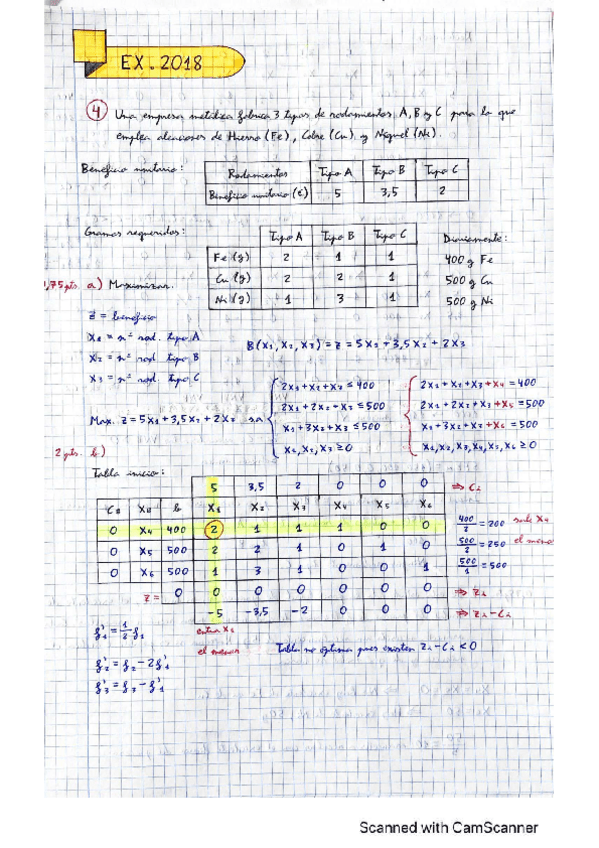 EX. 2018
4 Una empresa metálica fabrica 3 tipos de rodamientos A, B y C para lo que
emplea aleaciones de Hierro (Fe), Cobre (Cu) y Níquel (Ni).
Beneficio unitario:
Rodamientos Tipo A Tipo B Tipo C
Beneficio unitario (€) 5 3,5 2
Gramos requeridos:
Tipo A Tipo B Tipo C Diariamente:
Fe (g) 2 1 1 400 g Fe
Cu (g) 2 2 1 500 g Cu
Ni (g) 1 3 1 500 g Ni
,75 pts. a) Maximizar.
Z = beneficio
X1 = nº rod. tipo A
X2 = nº rod. tipo B
X3 = nº rod. tipo C
B(X1, X2, X3) = Z = 5X1 + 3,5X2 + 2X3
Max. Z = 5X1 + 3,5X2 + 2X3 sa
2X1 + X2 + X3 ≤ 400
2X1 + 2X2 + X3 ≤ 500
X1 + 3X2 + X3 ≤ 500
X1, X2, X3 ≥ 0
2X1 + X2 + X3 + X4 = 400
2X1 + 2X2 + X3 + X5 = 500
X1 + 3X2 + X3 + X6 = 500
X1, X2, X3, X4, X5, X6 ≥ 0
2 pts. b)
Tabla inicio:
5 3,5 2 0 0 0 ⇒ Ci
CB XB b X1 X2 X3 X4 X5 X6
0 X4 400 2 1 1 1 0 0 400/2 = 200 sale X4
0 X5 500 2 2 1 0 1 0 500/2 = 250 el menor
0 X6 500 1 3 1 0 0 1 500/1 = 500
Z = 0 0 0 0 0 0 0 ⇒ Zi
-5 -3,5 -2 0 0 0 ⇒ Zi - Ci
entra X1
el menor
Tabla no óptima pues existen Zi - Ci < 0
f'1 = 1/2 f1
f'2 = f2 - 2f'1
f'3 = f3 - f'1
Scanned with CamScanner